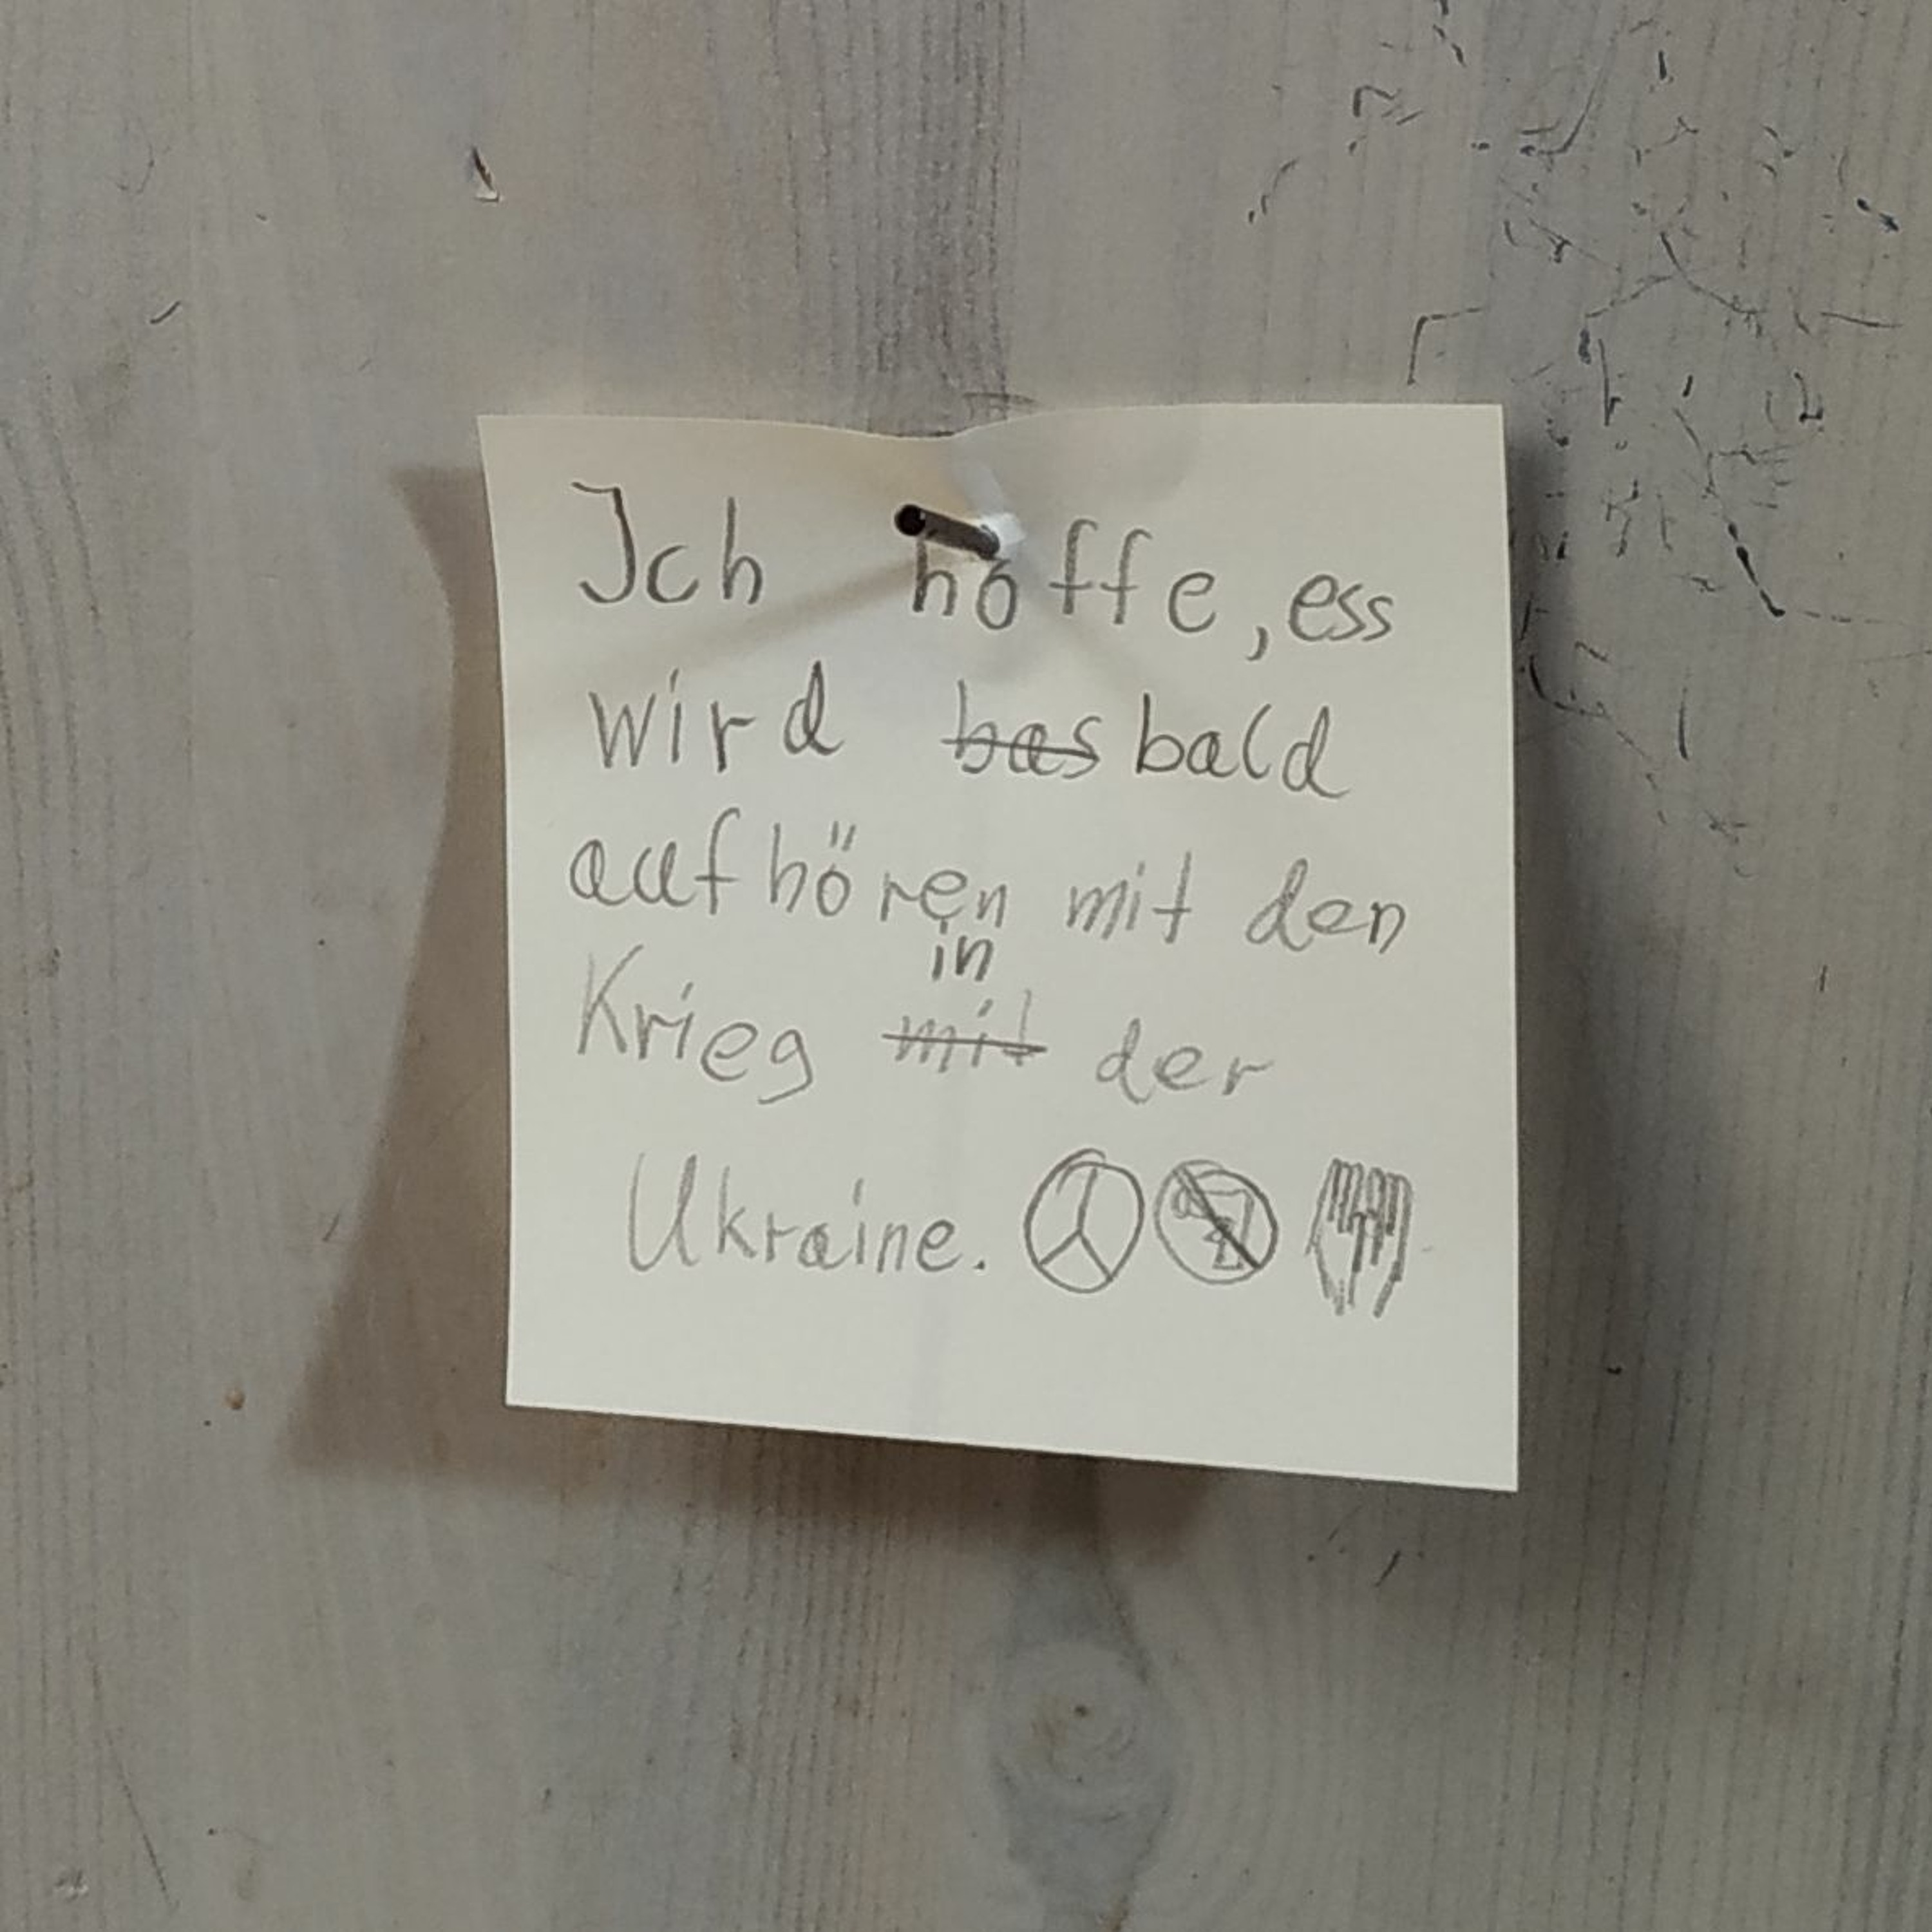 Ich hoffe, ess
wird bas bald
aufhören mit den
in
Krieg mit der
Ukraine.